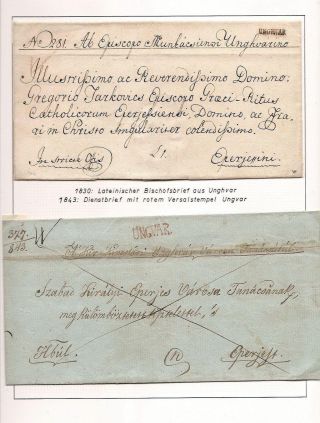 No 281. Ab Episcopo Munkácsiensi Unghvarino
UNGHVÁR
Illustrissimo ac Reverendissimo Domino
Gregorio Tarkovics Episcopo Græci-Ritus
Catholicorum Eperjessiensi, Domino, ac Fra-
ri in Christo Singulariter colendissimo.
Eperjesini
1830: Lateinischer Bischofsbrief aus Unghvar
1843: Dienstbrief mit rotem Versalstempel Ungvar
327.
843.
UNGVÁR
Szabad Királyi Eperjes Városa Tanácsának,
megkülömböztetett tisztelettel,
Hbúl
Eperjest.